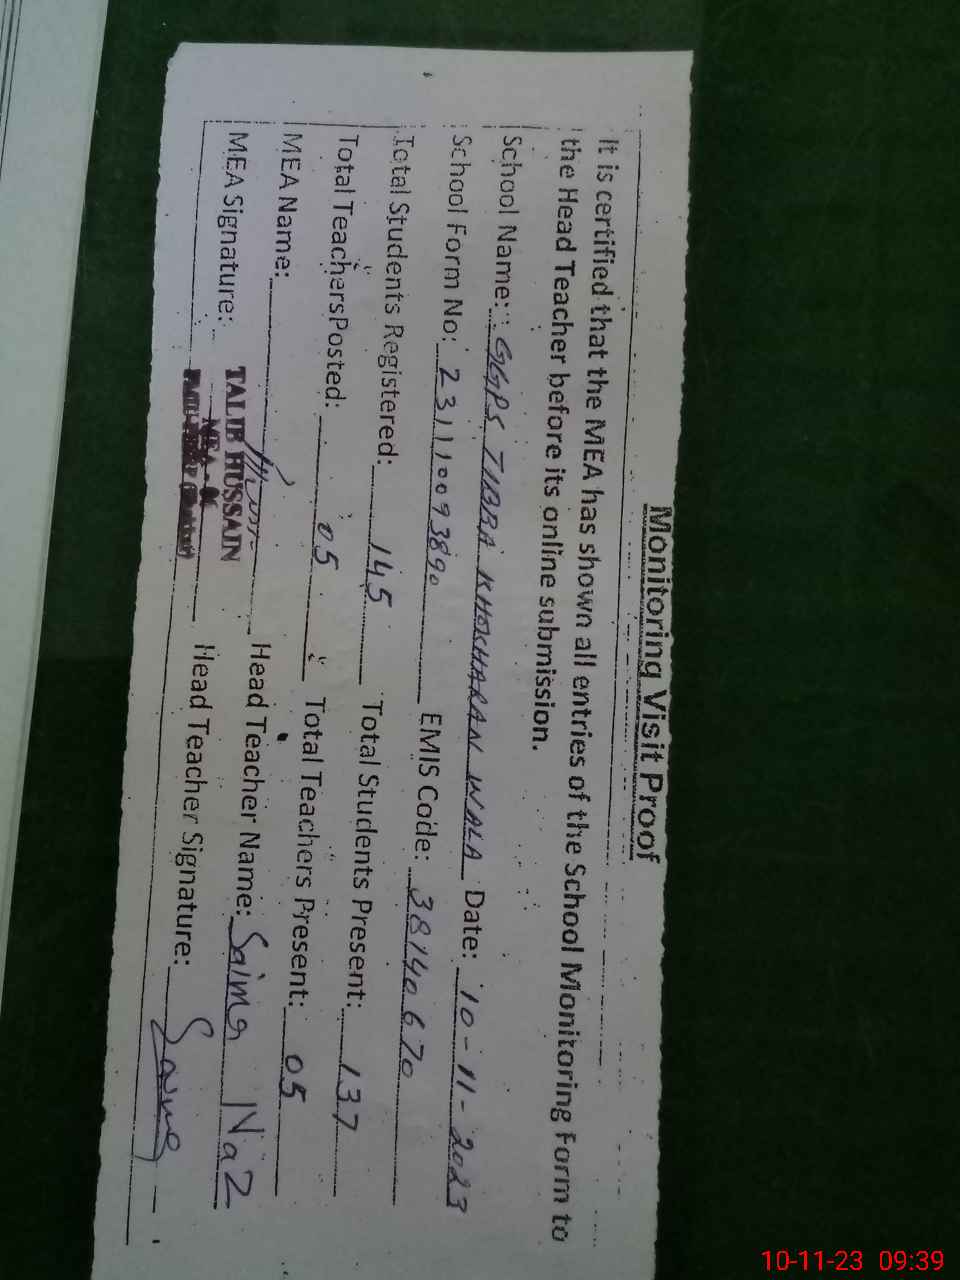 Monitoring Visit Proof
It is certified that the MEA has shown all entries of the School Monitoring Form to
the Head Teacher before its online submission.
School Name: GGPS TIBBA KHOKHARAN WALA Date: 10-11-2023
School Form No: 231110093890 EMIS Code: 38140670
Total Students Registered: 145 Total Students Present: 137
Total Teachers Posted: 05 Total Teachers Present: 05
MEA Name: Head Teacher Name: Saima Naz
MEA Signature: Head Teacher Signature: Saima
TALIB HUSSAIN
MEA-
10-11-23 09:39